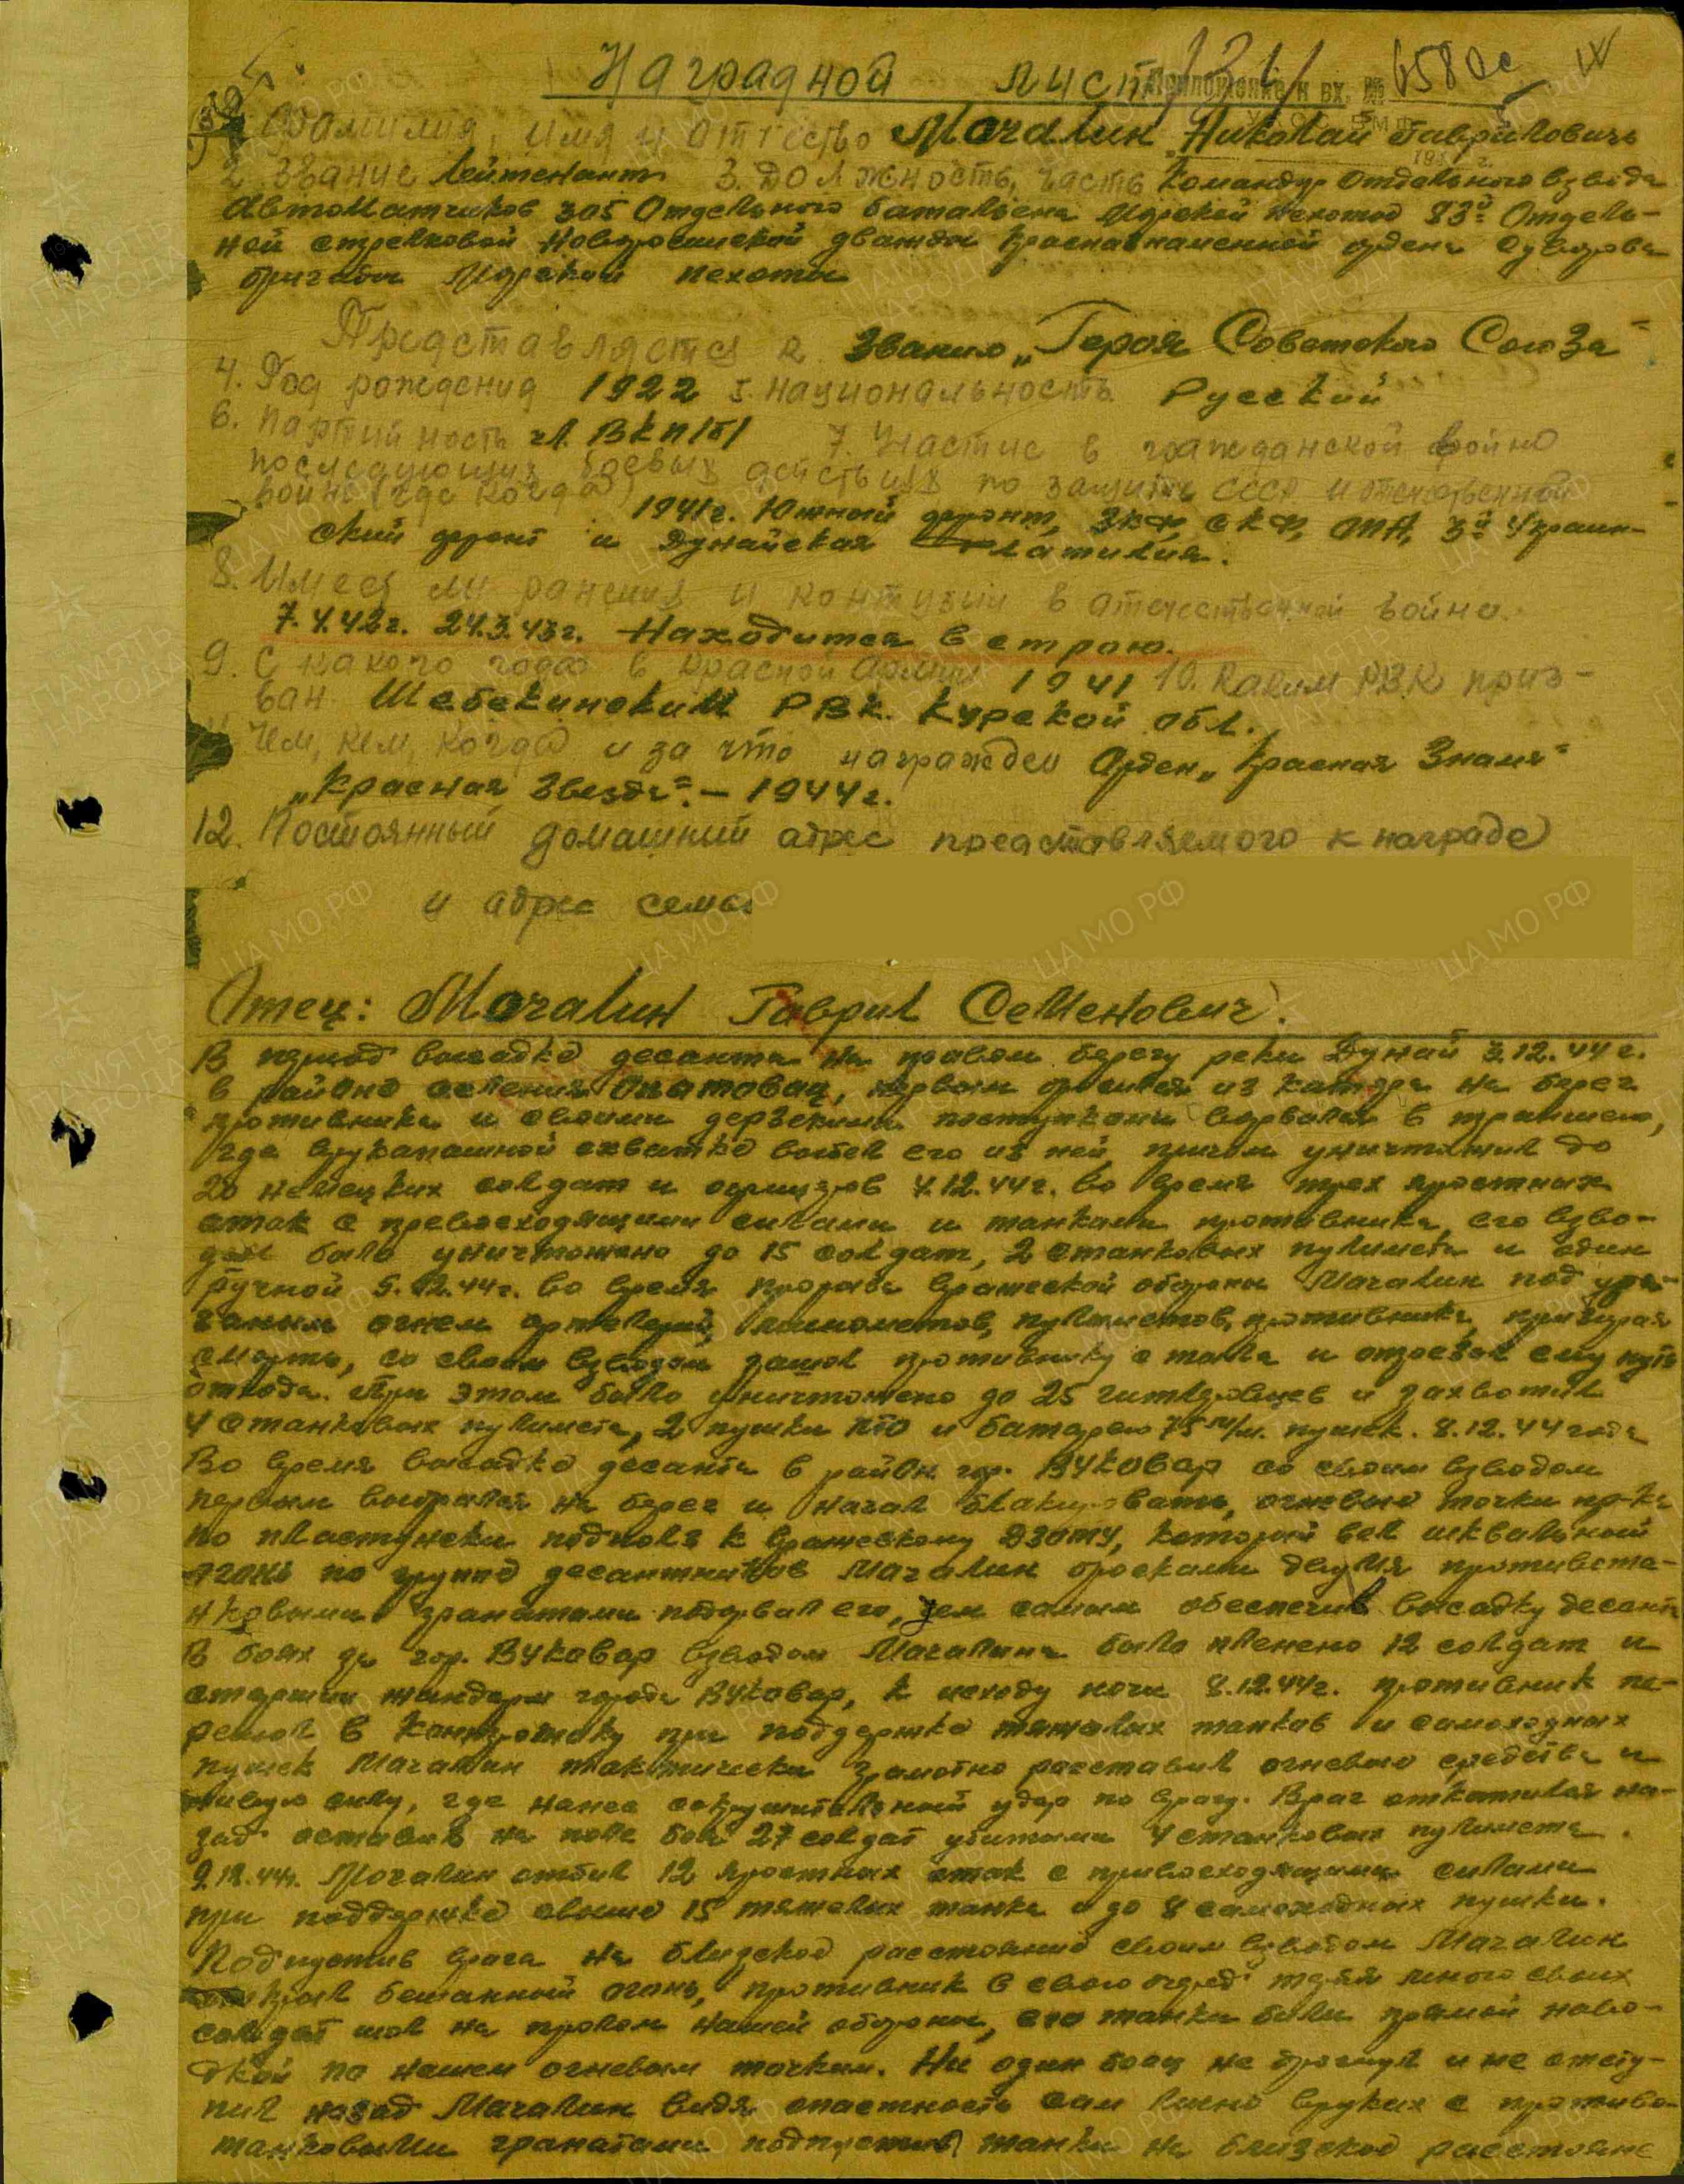 Наградной лист
Приложение к вх. № 6580с
Фамилия, имя и отчество Мочалин Николай Гаврилович
2. Звание лейтенант 3. Должность, часть Командир отдельного взвода
автоматчиков 305 Отдельного батальона Морской пехоты 83й Отдель-
ной стрелковой Новороссийской дважды Краснознаменной ордена Суворова
бригады Морской пехоты
Представляется к званию „Героя Советского Союза"
4. Год рождения 1922 5. национальность Русский
6. партийность чл. ВКП/б/ 7. Участие в гражданской войне
последующих боевых действиях по защите СССР и отечественной
войне (где когда)
1941г. Южный фронт, ЗКФ, СКФ, ОПА, 3й Украин-
ский фронт и Дунайская флотилия.
8. Имеет ли ранения и контузии в отечественной войне.
7.4.42г. 24.3.43г. Находится в строю.
9. С какого года в красной армии 1941 10. Каким РВК приз-
ван Шебекинским РВК. Курской обл.
Чем, кем, когда и за что награжден Орден „Красная Знамя"
„Красная Звезда". – 1944г.
12. Постоянный домашний адрес представляемого к награде
и адрес семьи
Отец: Мочалин Гаврил Семенович.
В период высадке десанта на правом берегу реки Дунай 3.12.44г.
в районе селения Опатовац, первым бросился из катера на берег
противника и своими дерзкими поступками ворвался в траншею,
где врукапашной схватке выбил его из ней, причем уничтожил до
20 немецких солдат и офицеров 4.12.44г. во время трех яростных
атак с превосходящими силами и танками противника, его взво-
дом было уничтожено до 15 солдат, 2 станковых пулимета и один
ручной 5.12.44г. во время прорыва вражеской обороны Мочалин под ура-
ганым огнем артелерий, минометов, пулиметов, противника, призирая
смерть, со своим взводом зашол противнику с тыла и отрезал ему путь
отхода. При этом было уничтожено до 25 гитлеровцев и захватил
4 станковых пулимета, 2 пушки ПТО и батарею 75 м/м. пушек. 8.12.44 года
Во время высадке десанта в районе гор. Вуковар со своим взводом
первым выбрался на берег и начал блакировать, огневые точки пр-ка
по пластунски подполз к вражескому дзоту, который вел шквальный
огонь по группе десантников Мочалин бросками двумя противота-
нковыми гранатами подорвал его, тем самым обеспечив высадку десанта
В боях за гор. Вуковар взводом Мочалина было пленено 12 солдат и
старший жандарм города Вуковар, к исходу ночи 8.12.44г. противник пе-
решол в контратаку при поддержке тяжолых танков и самоходных
пушек Мочалин тактически грамотно расставил огневые средства и
живую силу, где нанес сокрушительный удар по врагу. Враг откатился на-
зад оставив на поле боя 27 солдат убитыми 4 станковых пулимета.
9.12.44г. Мочалин отбил 12 яростных атак с привосходящими силами
при поддержке свыше 15 тяжолых танка и до 8 самоходных пушки.
Подпустив врага на близское расстояние своим взводом Мочалин
открыл бешанный огонь, противник в свою очередь теряя много своих
солдат шол на пролом нашей обороны, его танки били прямой наво-
дкой по нашем огневым точкам. Ни один боец не дрогнул и не отсту-
пил назад Мочалин видя опастность сам лично вруках с противо-
танковыми гранатами подпустив танки на близское расстояние